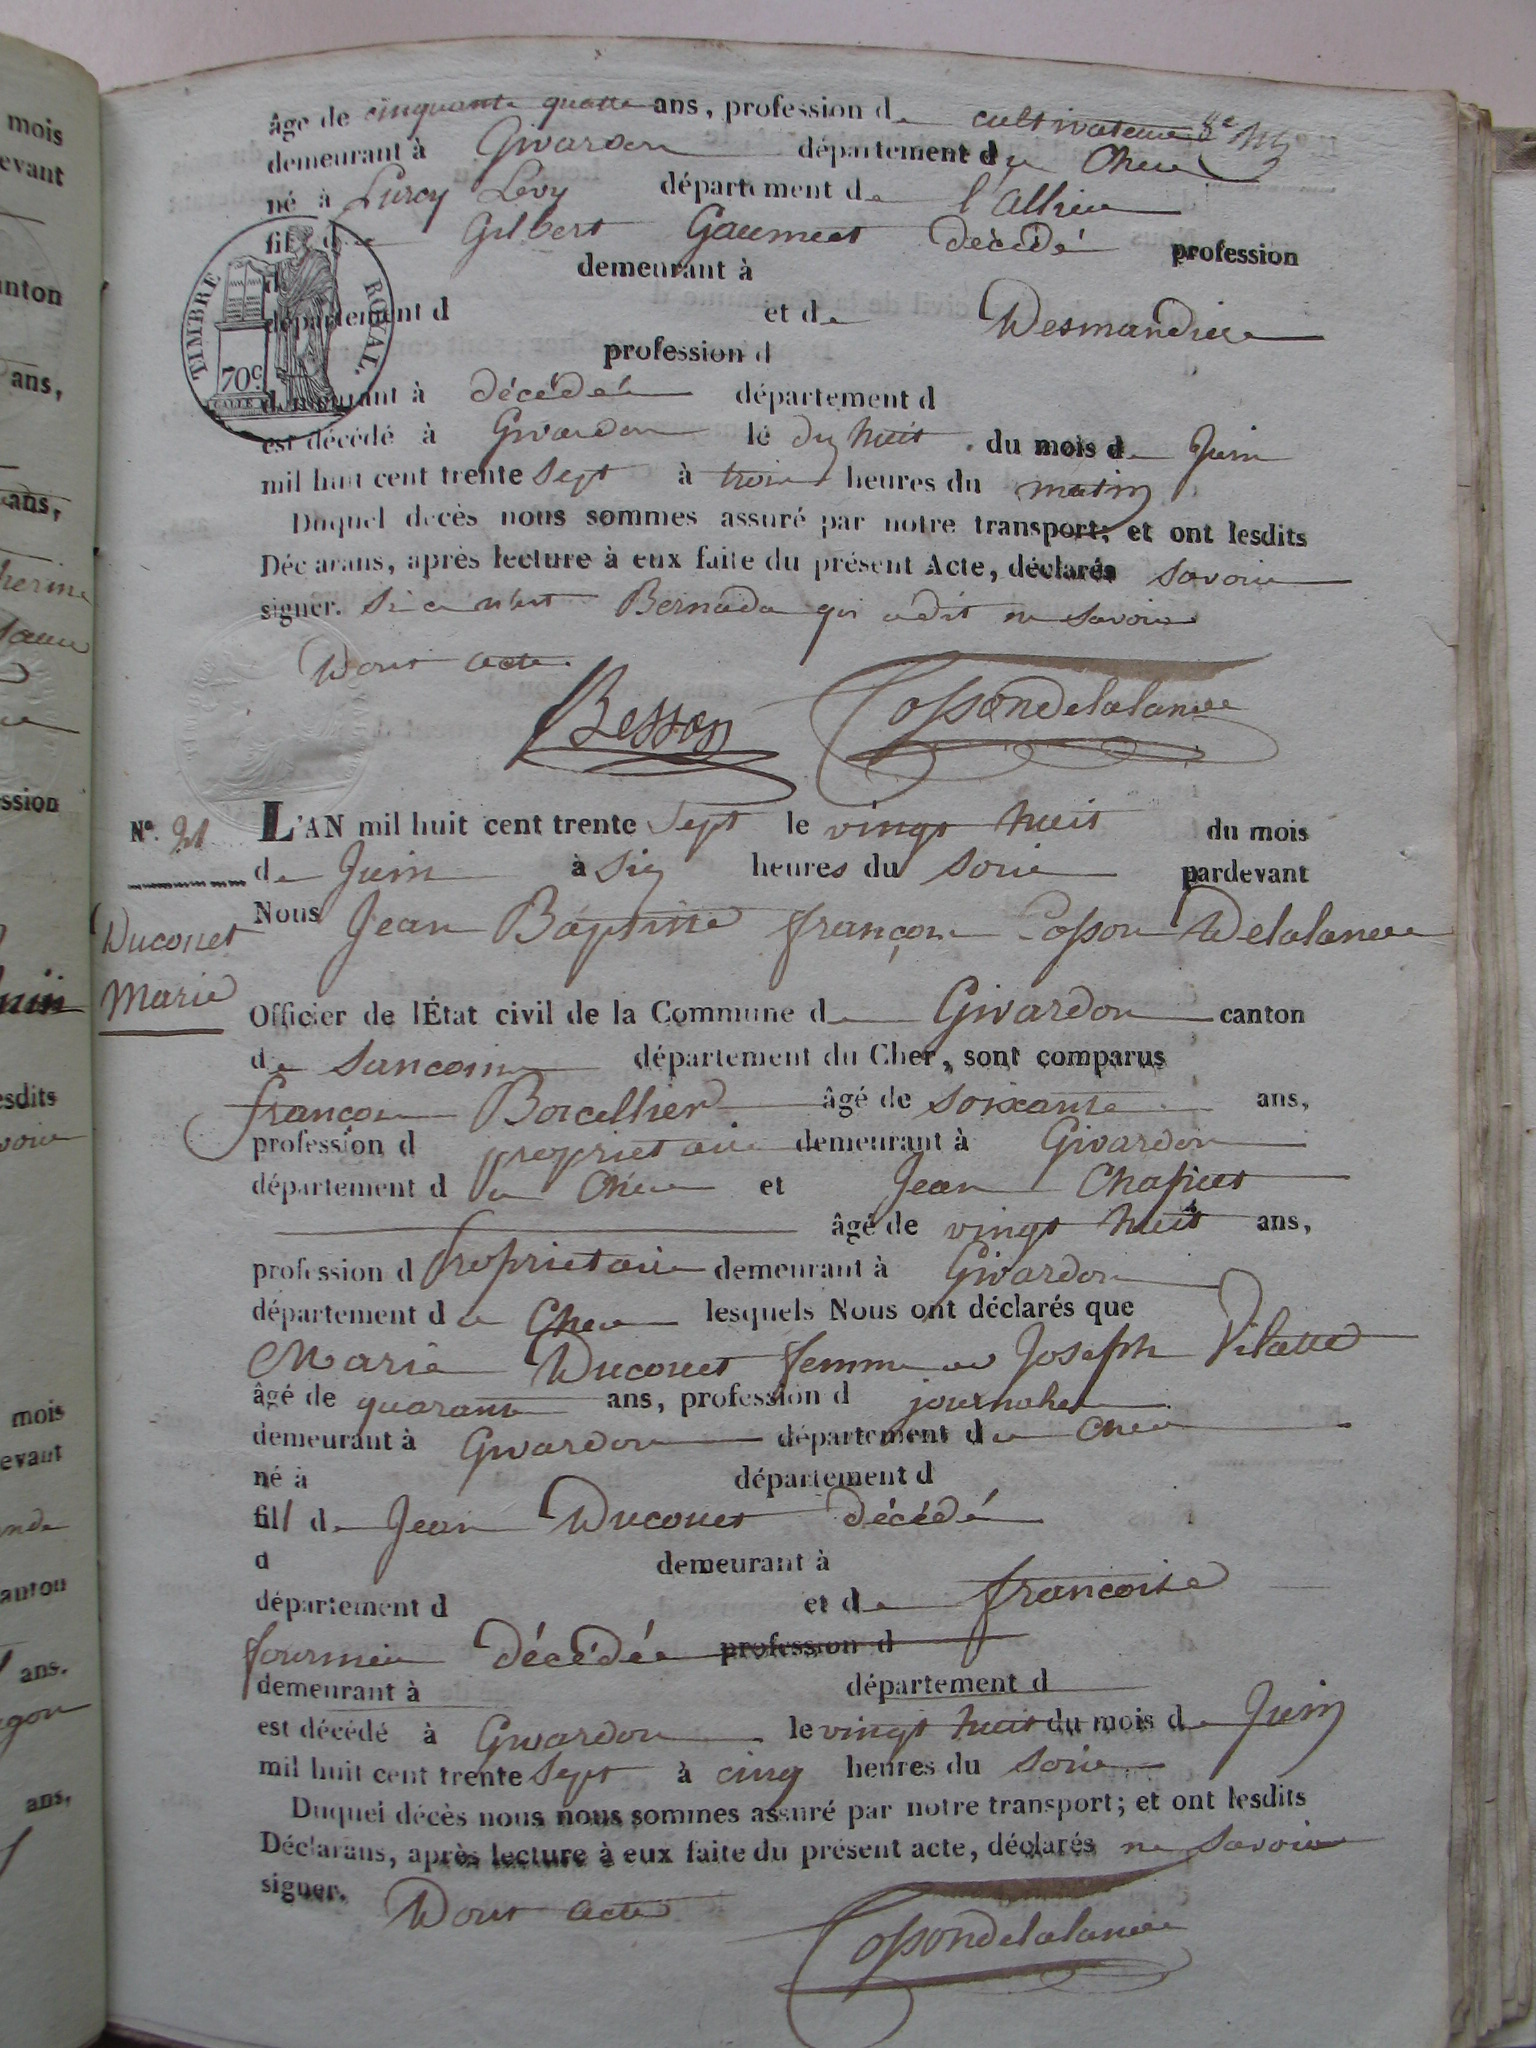 âge de cinquante quatre ans, profession de cultivateur
demeurant à Givardon département du Cher
né à Lurcy Lévy département de l'allier
fil de Gilbert Gaumeat décédé profession
d demeurant à
département d et de Desmandier
profession d
demeurant à décédée département d
est décédé à Givardon le dix huit du mois de Juin
mil huit cent trente Sept à trois heures du matin
Duquel decès nous sommes assuré par notre transport; et ont lesdits
Déc arans, après lecture à eux faite du présent Acte, déclarés savoir
signer. Si ce n'est Bernada qui a dit ne savoir
Dont acte.
Besson Cossondelalance
TIMBRE ROYAL.
70c
N° 21
Ducouet
Marie
L'AN mil huit cent trente Sept le vingt huit du mois
de Juin à Six heures du Soir pardevant
Nous Jean Baptiste françois Cosson Delalance
Officier de lÉtat civil de la Commune de Givardon canton
de Sancoins département du Cher, sont comparus
françois Boicellier âgé de soixante ans,
profession d propriétaire demeurant à Givardon
département du Cher et Jean Chapuet
âgé de vingt huit ans,
profession d propriétaire demeurant à Givardon
département du Cher lesquels Nous ont déclarés que
Marie Ducouet femme de Joseph Vilatte
âgé de quarante ans, profession d journalier
demeurant à Givardon département du Cher
né à département d
fill de Jean Ducouet décédé
d demeurant à
département d et de francoise
fournier décédée profession d
demeurant à département d
est décédé à Givardon le vingt huit du mois de Juin
mil huit cent trente Sept à cinq heures du Soir
Duquel décès nous nous sommes assuré par notre transport; et ont lesdits
Déclarans, après lecture à eux faite du présent acte, déclarés ne Savoir
signer. Dont acte
Cossondelalance